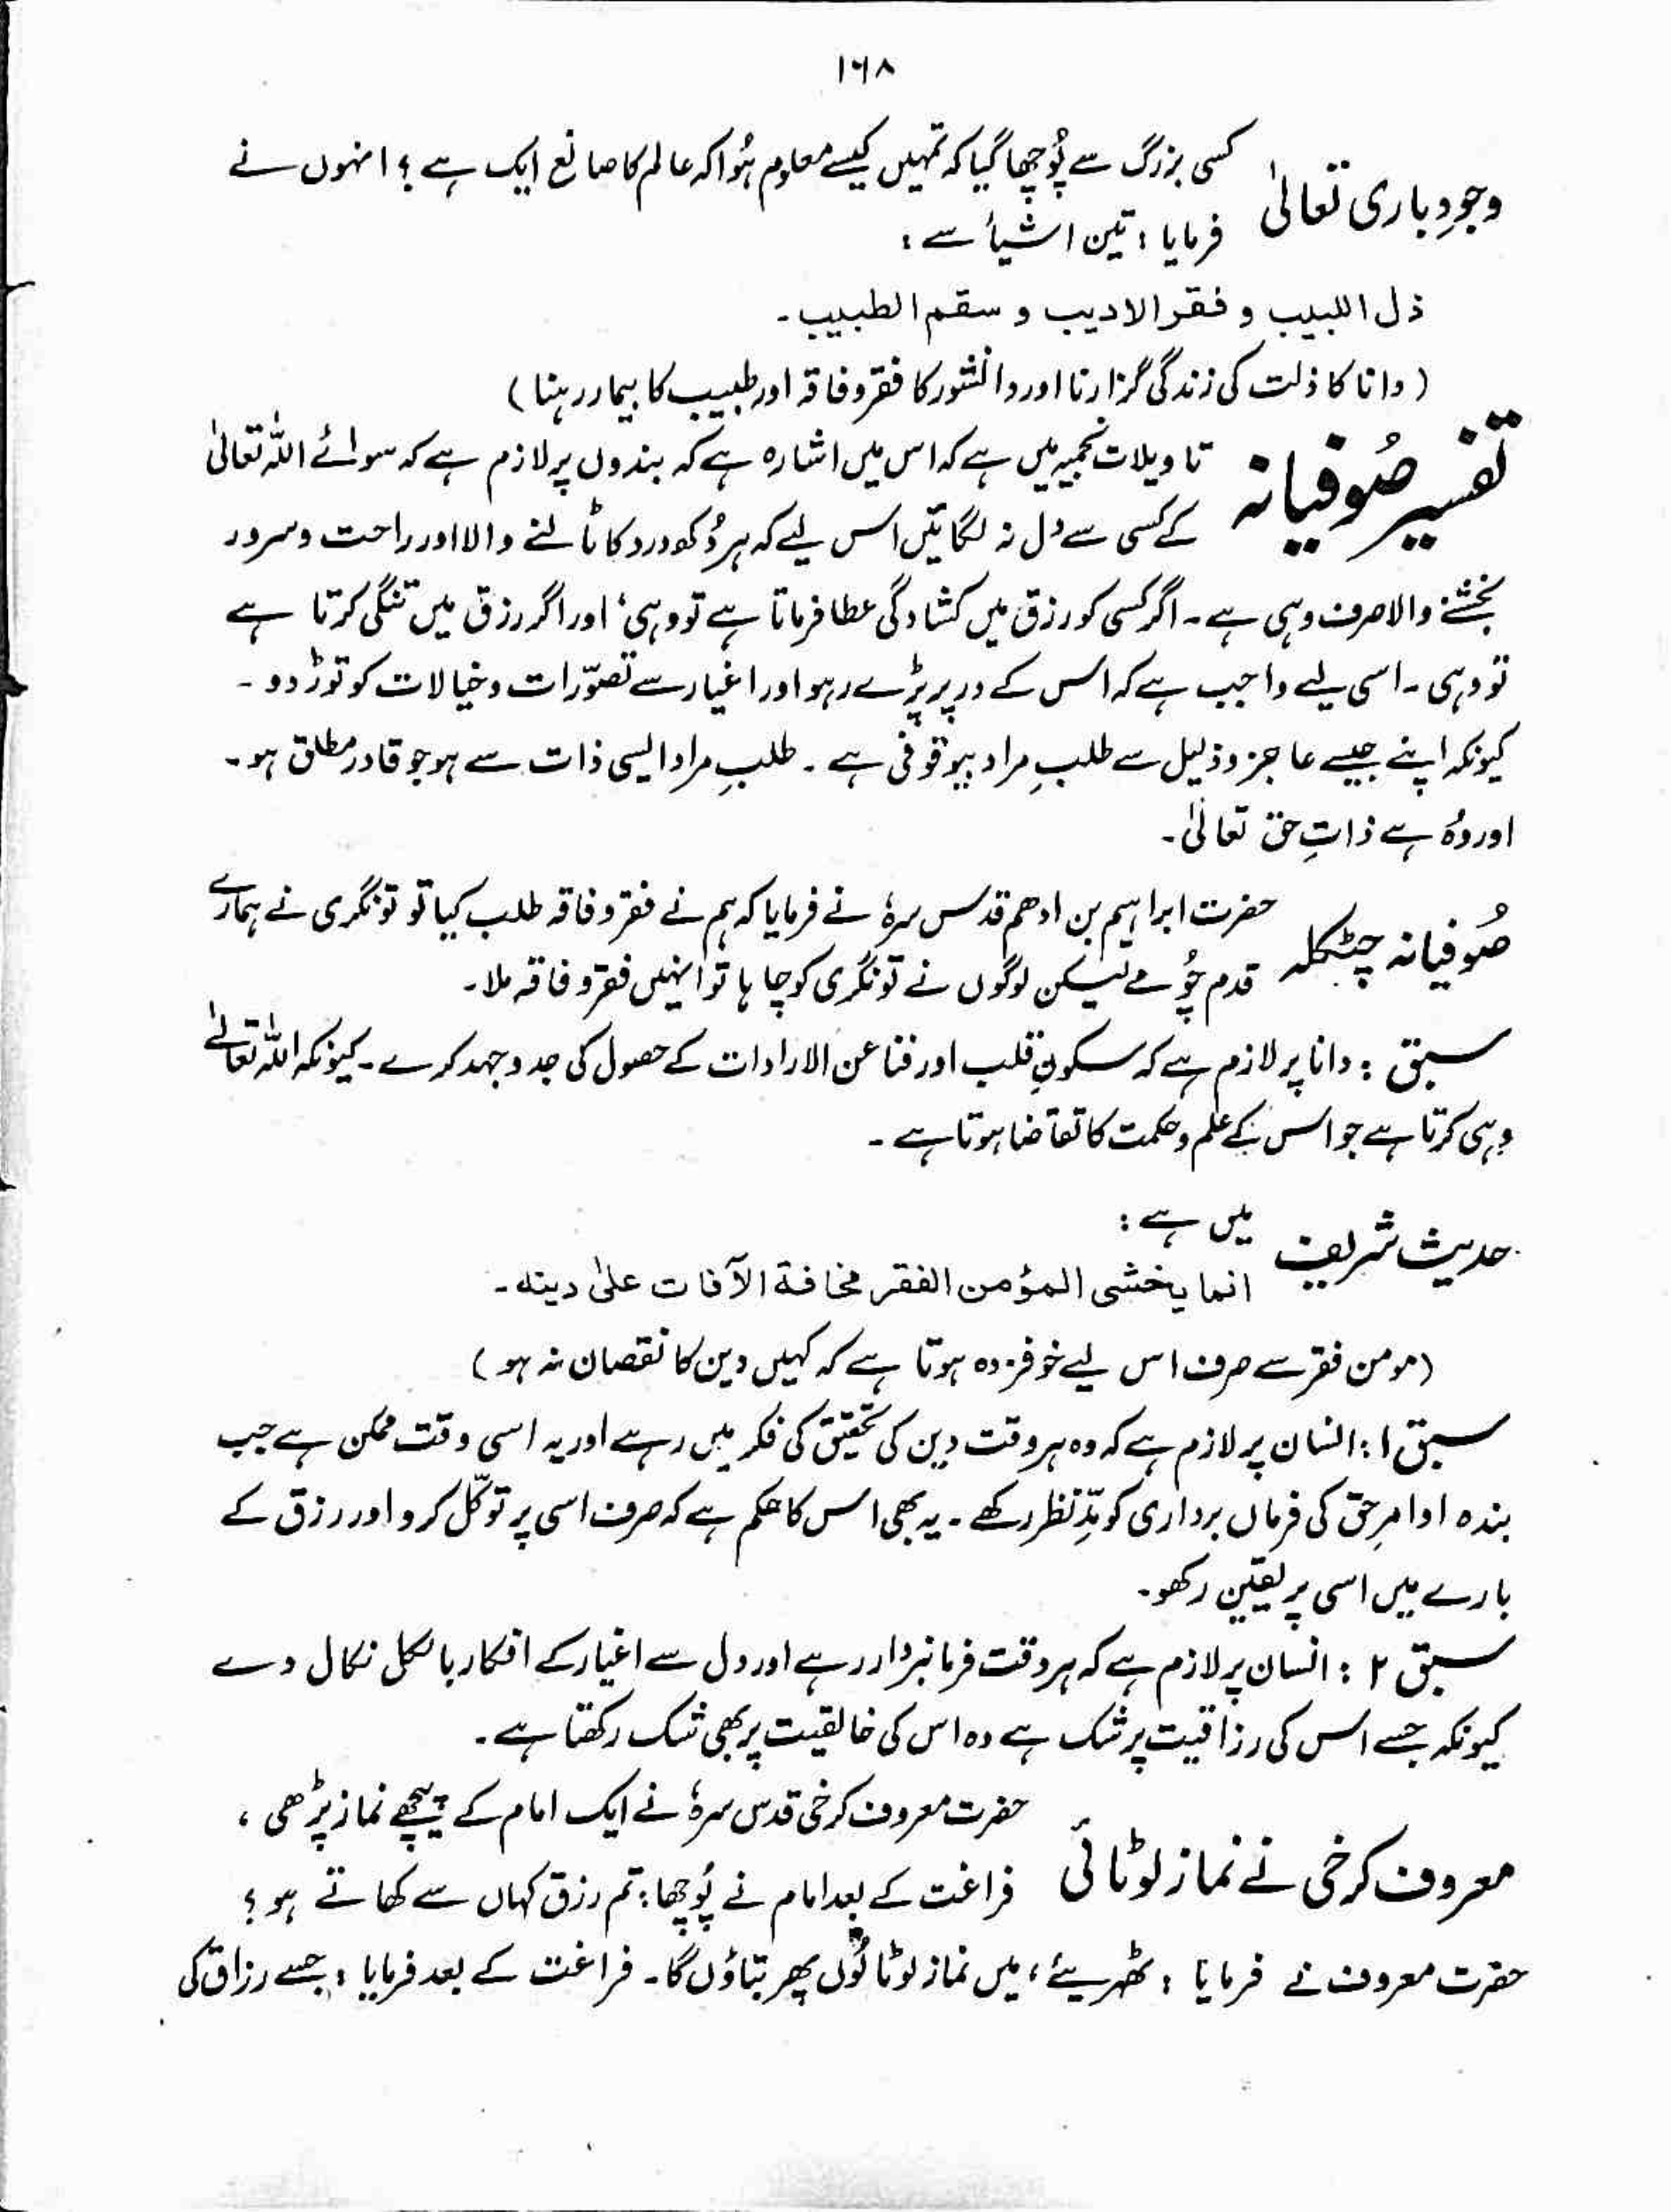 ۱۶۸
وجودِ باری تعالیٰ کسی بزرگ سے پُوچھا گیا کہ تمہیں کیسے معلوم ہُوا کہ عالم کا صانع ایک ہے ؟ انہوں نے
فرمایا : تین اشیأ سے :
ذل اللبیب و فقر الادیب و سقم الطبیب ۔
( دانا کا ذلت کی زندگی گزارنا اور دانشور کا فقر و فاقہ اور طبیب کا بیمار رہنا )
تفسیر صُوفیانہ تاویلات نجمیہ میں ہے کہ اس میں اشارہ ہے کہ بندوں پر لازم ہے کہ سوائے اللہ تعالیٰ
کے کسی سے دل نہ لگائیں اس لیے کہ ہر دُکھ درد کا ٹالنے والا اور راحت و سرور
بخشنے والا صرف وہی ہے ۔ اگر کسی کو رزق میں کشادگی عطا فرماتا ہے تو وہی، اور اگر رزق میں تنگی کرتا ہے
تو وہی ۔ اسی لیے واجب ہے کہ اس کے در پر پڑے رہو اور اغیار سے تصوّرات و خیالات کو توڑ دو ۔
کیونکہ اپنے جیسے عاجز و ذلیل سے طلبِ مراد بیوقوفی ہے ۔ طلبِ مراد ایسی ذات سے ہو جو قادر مطلق ہو ۔
اور وُہ ہے ذاتِ حق تعالیٰ ۔
صُوفیانہ چٹکلہ حضرت ابراہیم بن ادھم قدس سرہٗ نے فرمایا کہ ہم نے فقر و فاقہ طلب کیا تو تونگری نے ہمارے
قدم چُومے لیکن لوگوں نے تونگری کو چاہا تو انہیں فقر و فاقہ ملا ۔
سبق : دانا پر لازم ہے کہ سکونِ قلب اور فنا عن الارادات کے حصول کی جدوجہد کرے ۔ کیونکہ اللہ تعالےٰ
وہی کرتا ہے جو اس کے علم و حکمت کا تقاضا ہوتا ہے ۔
حدیث شریف میں ہے :
انما یخشی المؤمن الفقر مخافة الآفات علیٰ دینہ ۔
( مومن فقر سے صرف اس لیے خوفزدہ ہوتا ہے کہ کہیں دین کا نقصان نہ ہو )
سبق ۱ : انسان پر لازم ہے کہ وہ ہر وقت دین کی تحقیق کی فکر میں رہے اور یہ اسی وقت ممکن ہے جب
بندہ اوامرِ حق کی فرماں برداری کو مدِّ نظر رکھے ۔ یہ بھی اس کا حکم ہے کہ صرف اسی پر توکّل کرو اور رزق کے
بارے میں اسی پر یقین رکھو ۔
سبق ۲ : انسان پر لازم ہے کہ ہر وقت فرمانبردار رہے اور دل سے اغیار کے افکار بالکل نکال دے
کیونکہ جسے اس کی رزاقیت پر شک ہے وہ اس کی خالقیت پر بھی شک رکھتا ہے ۔
معروف کرخی نے نماز لوٹائی حضرت معروف کرخی قدس سرہٗ نے ایک امام کے پیچھے نماز پڑھی ،
فراغت کے بعد امام نے پُوچھا : تم رزق کہاں سے کھاتے ہو ؟
حضرت معروف نے فرمایا : ٹھہریئے ، میں نماز لوٹا لُوں پھر بتاؤں گا ۔ فراغت کے بعد فرمایا : جسے رزاق کی